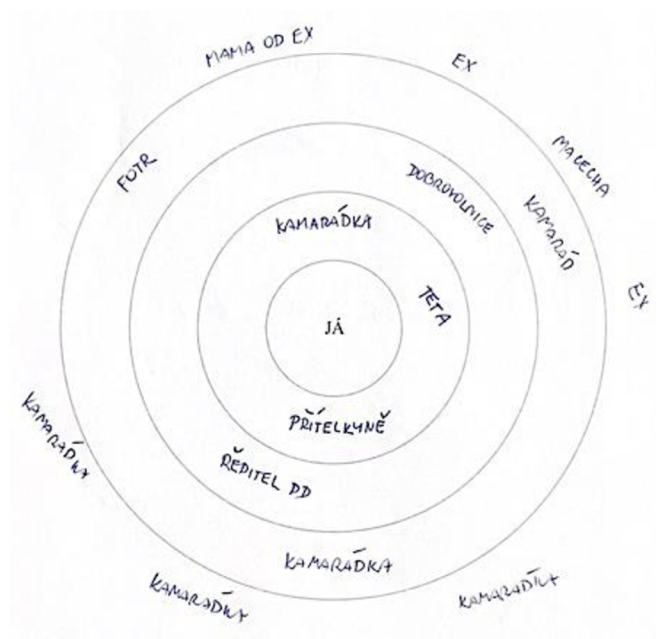 MAMA OD EX
EX
MACECHA
FOTR
DOBROVOLNICE
KAMARÁD
KAMARÁDKA
TETA
EX
JÁ
PŘÍTELKYNĚ
ŘEDITEL DD
KAMARÁDKY
KAMARÁDKA
KAMARÁDKY
KAMARÁDKA